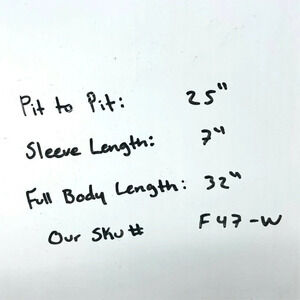 Pit to Pit: 25"
Sleeve Length: 7"
Full Body Length: 32"
Our Sku# F47-W